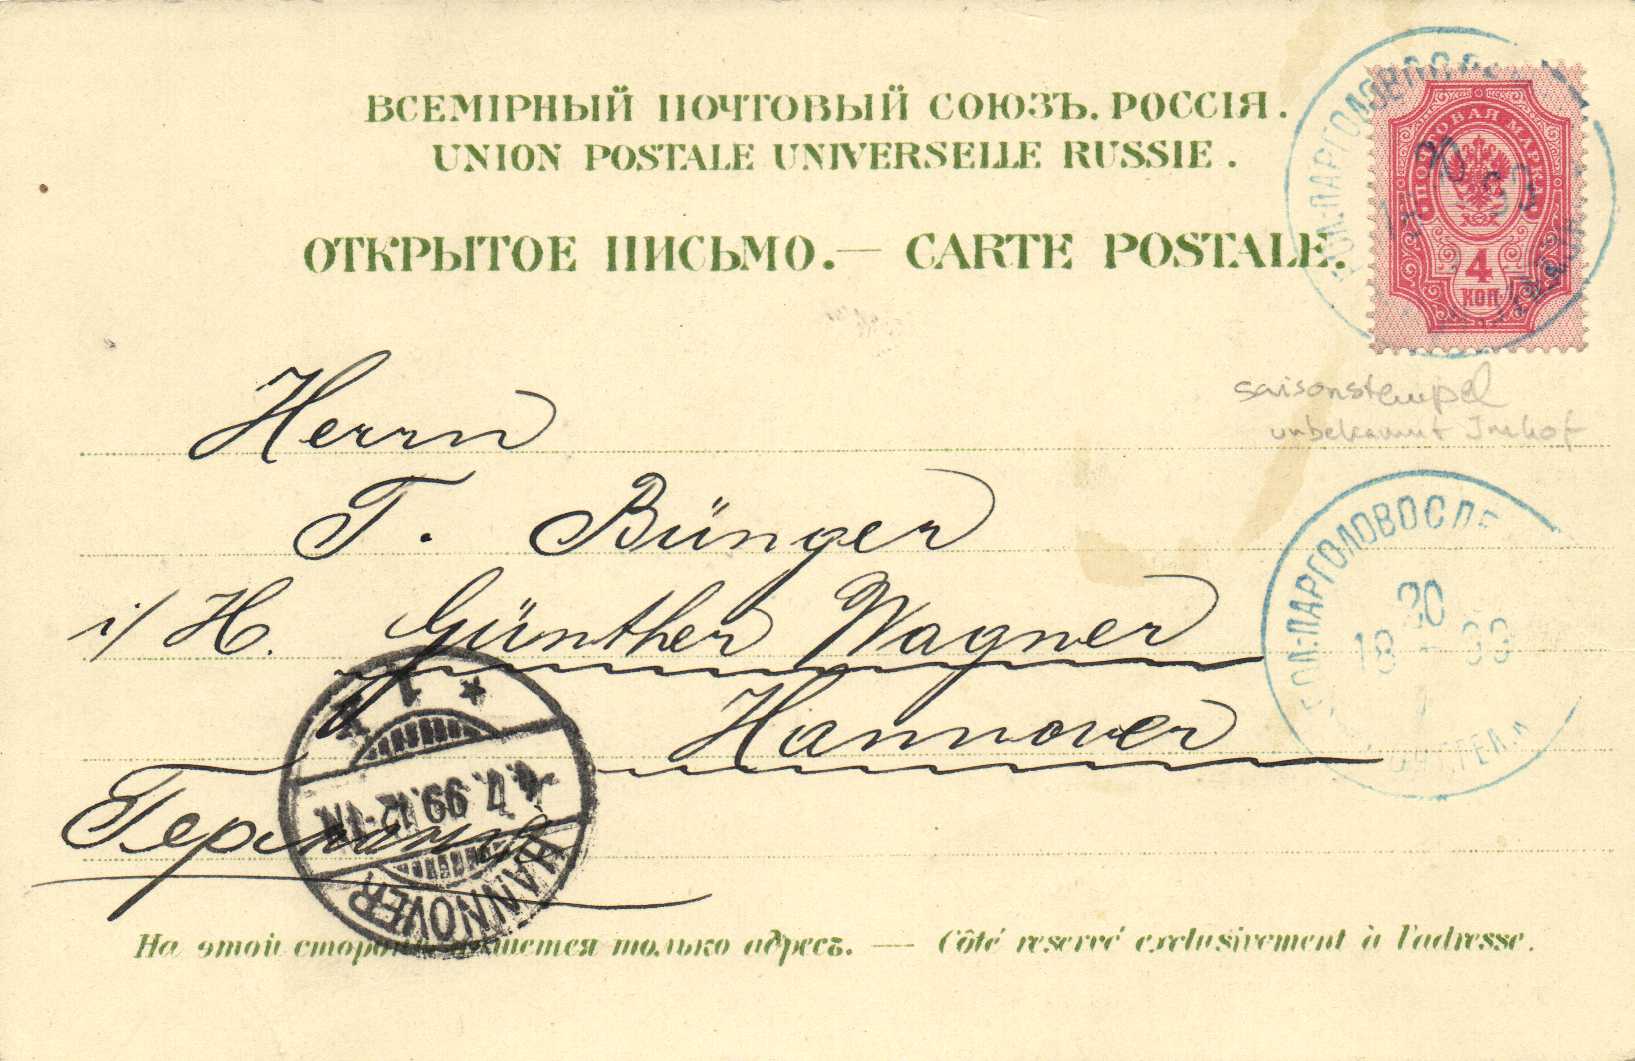 ВСЕМІРНЫЙ ПОЧТОВЫЙ СОЮЗЪ. РОССІЯ.
UNION POSTALE UNIVERSELLE RUSSIE.
ОТКРЫТОЕ ПИСЬМО. — CARTE POSTALE.
ПОЧТОВАЯ МАРКА
4
КОП
20
saisonstempel
unbekannt Imhof
Herrn
T. Bünger
i/ H. Günther Wagner
Hannover
Германія
БОЛ.-ПАРГОЛОВО
20
18 99
HANNOVER
4.7.99.12-1N.
* 1 *
На этой сторонѣ пишется только адресъ. — Côté reservé exclusivement à l'adresse.